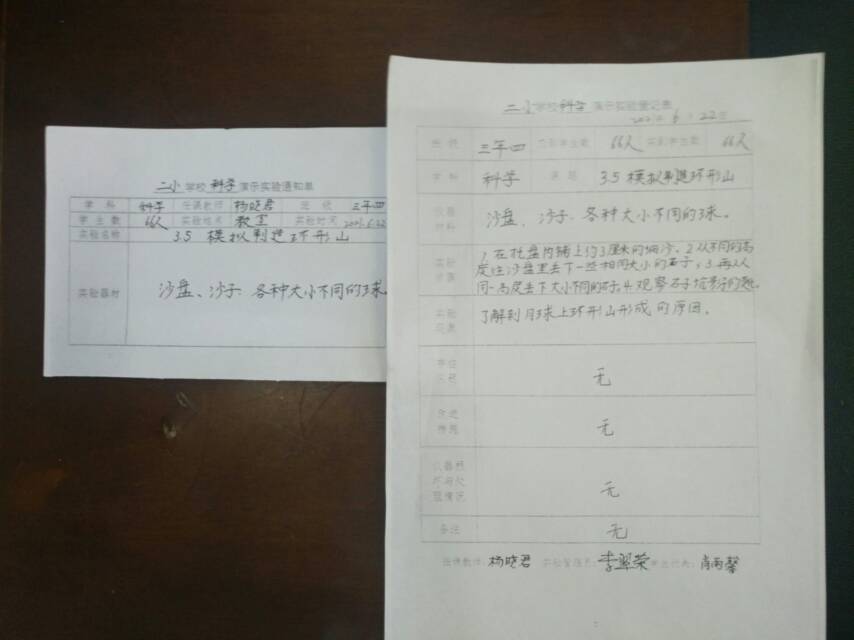 二小学校科学演示实验通知单
学科 科学 任课教师 杨晓君 班级 三年四
学生数 66人 实验地点 教室 实验时间 2021.6.22
实验名称 3.5 模拟制造环形山
实验器材 沙盘、沙子、各种大小不同的球。
二小学校科学演示实验登记表
2021年6月22日
班级 三年四 应到学生数 66人 实到学生数 66人
学科 科学 课题 3.5 模拟制造环形山
仪器
材料 沙盘、沙子、各种大小不同的球。
实验
步骤 1.在托盘内铺上约3厘米的细沙。2.从不同的高
度往沙盘里丢下一些相同大小的石子；3.再从
同一高度丢下大小不同的石子；4.观察石子坑
实验
效果 了解到月球上环形山形成的原因。
存在
问题 无
改进
措施 无
仪器损
坏与处
理情况 无
备注 无
任课教师：杨晓君 实验管理员：李翠荣 学生代表：肖雨馨